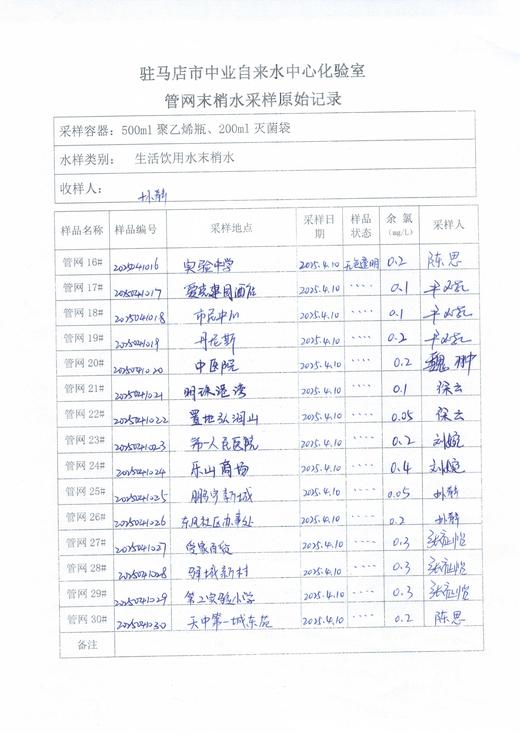 驻马店市中业自来水中心化验室
管网末梢水采样原始记录
采样容器：500ml 聚乙烯瓶、200ml 灭菌袋
水样类别： 生活饮用水末梢水
收样人：
样品名称 样品编号 采样地点 采样日期 样品状态 余 氯 (mg/L) 采样人
管网 16# 2025041016 实验中学 2025.4.10 无色透明 0.2 陈思
管网 17# 2025041017 爱家惠园酒店 2025.4.10 ···· 0.1
管网 18# 2025041018 市民中心 2025.4.10 ···· 0.1
管网 19# 2025041019 丹尼斯 2025.4.10 ···· 0.2
管网 20# 2025041020 中医院 2025.4.10 ···· 0.2 魏翀
管网 21# 2025041021 明珠港湾 2025.4.10 ···· 0.1 徐云
管网 22# 2025041022 置地弘润山 2025.4.10 ···· 0.05 徐云
管网 23# 2025041023 第一人民医院 2025.4.10 ···· 0.2 刘婉
管网 24# 2025041024 乐山商场 2025.4.10 ···· 0.4 刘婉
管网 25# 2025041025 鹏宇新城 2025.4.10 ···· 0.05
管网 26# 2025041026 东风社区办事处 2025.4.10 ···· 0.2
管网 27# 2025041027 爱家百货 2025.4.10 ···· 0.3
管网 28# 2025041028 驿城新村 2025.4.10 ···· 0.3
管网 29# 2025041029 第二实验小学 2025.4.10 ···· 0.3
管网 30# 2025041030 天中第一城东苑 2025.4.10 ···· 0.2 陈思
备注